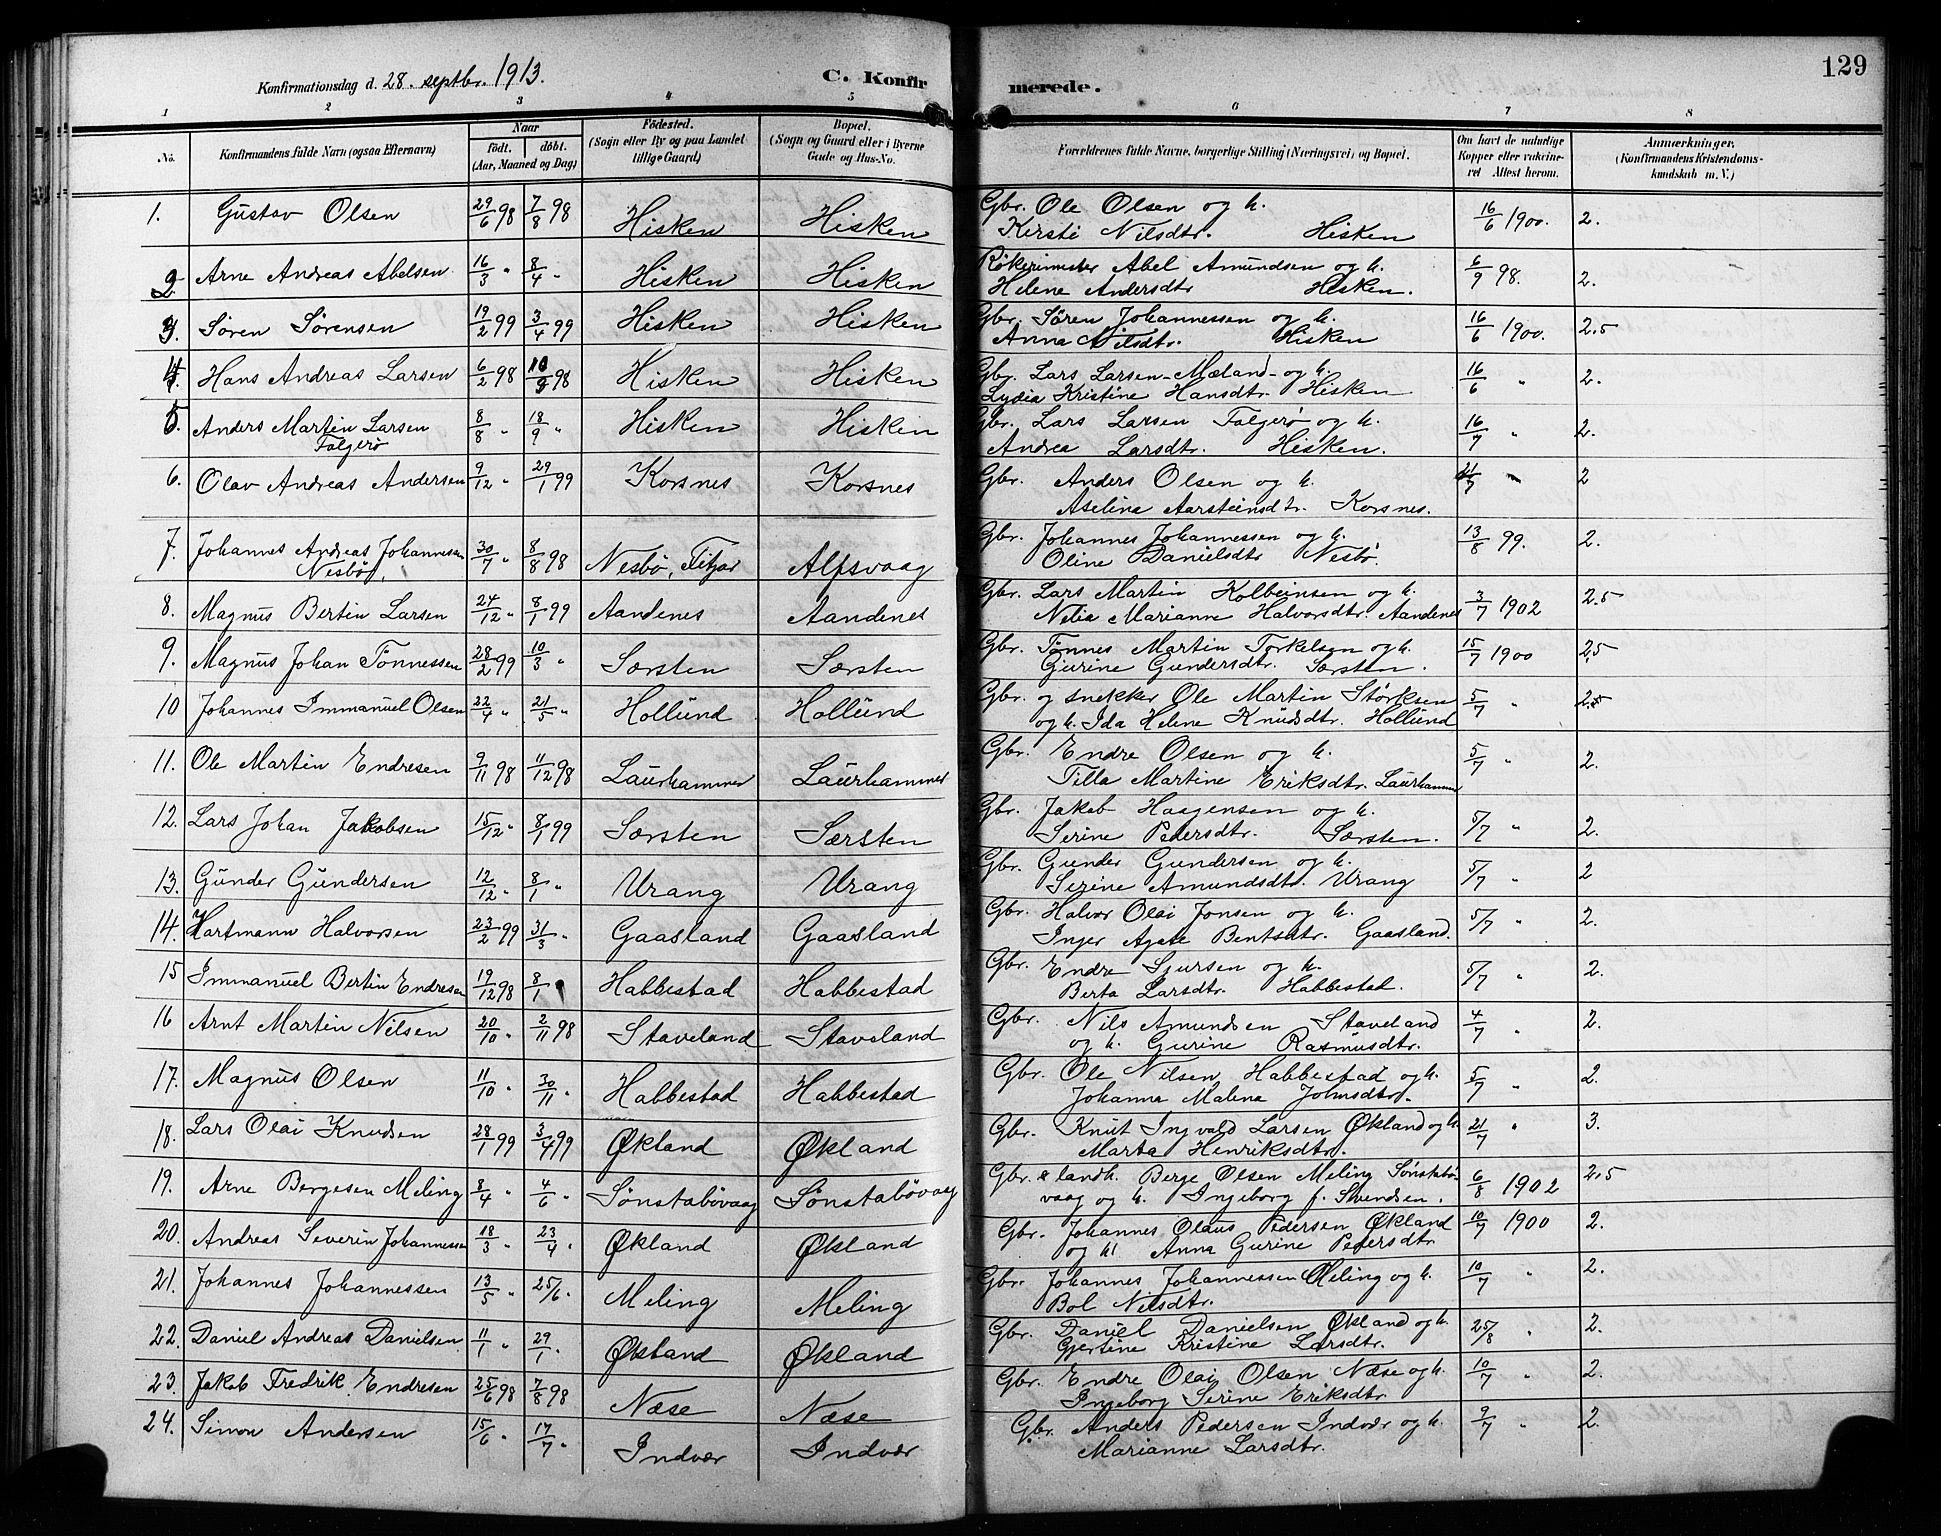 129
Konfirmationsdag d. 28. septbr. 1913.
C. Konfirmerede.
1 2 3 4 5 6 7 8
No. Konfirmandens fulde Navn (ogsaa Efternavn) Naar födt. döbt. (Aar, Maaned og Dag) Födested. (Sogn eller By og paa Landet tillige Gaard) Bopæl. (Sogn og Gaard eller i Byerne Gade og Hus-No. Forældrenes fulde Navne, borgerlige Stilling (Næringsvei) og Bopæl. Om havt de naturlige Kopper eller vakcineret Attest herom. Anmærkninger. (Konfirmandens Kristendomskundskab m. V.)
1. Gustav Olsen 29/6 98 7/8 98 Hisken Hisken Gbr. Ole Olsen og h. 16/6 1900. 2.
Kirsti Nilsdtr. Hisken
2 Arne Andreas Abelsen 16/3 " 8/4 " Hisken Hisken Abel Amundsen og h. 6/9 98. 2.
Helene Andersdtr Hisken.
3. Sören Sörensen 19/2 99 3/4 99 Hisken Hisken Gbr. Sören Johannessen og h. 16/6 1900. 2.5
Anna Nilsdtr. Hisken
4. Hans Andreas Larsen 6/2 98 98 Hisken Hisken Gbr. Lars Larsen-Mæland- og h. 16/6 " 2.
Lydia Kristine Hansdtr. Hisken
5. Anders Martin Larsen 8/8 " 18/9 " Hisken Hisken Gbr. Lars Larsen Folgerö og h. 16/7 " 2.
Folgerö Andrea Larsdtr. Hisken.
6. Olav Andreas Andersen 9/12 " 29/1 99 Korsnes Korsnes Gbr. Anders Olsen og h. 21/7 " 2
Aselina Aarsteinsdtr. Korsnes.
7. Johannes Andreas Johannesen 30/7 " 8/8 98 Nesbö, Fitjar Alfsvaag Gbr. Johannes Johannessen og h. 13/8 99. 2.
Nesbö. Oline Danielsdtr Nesbö.
8. Magnus Bertin Larsen 24/12 " 8/1 99 Aandenes Aandenes Gbr. Lars Martin Kolbeinsen og h. 3/7 1902 2.5
Marianne Halvorsdtr. Aandenes
9. Magnus Johan Tönnessen 28/2 99 10/3 " Særsten Særsten Gbr. Tönnes Martin Torkelsen og h. 15/7 1900 2,5
Gurine Gundersdtr. Særsten.
10 Johannes Immanuel Olsen 22/4 " 21/5 " Hollund Hollund Gbr. og snekker Ole Martin Störksen 5/7 " 2.5
og h. Ida Helene Knudsdtr. Hollund
11. Ole Martin Endresen 9/11 98 11/12 98 Laurhammer Laurhammer Gbr. Endre Olsen og h. 5/7 " 2.
Tilla Martine Eriksdtr. Laurhammer
12. Lars Johan Jakobsen 15/12 " 8/1 99 Særsten Særsten Gbr. Jakob Haagensen og h. 5/7 " 2.
Serine Pedersdtr. Særsten.
13. Gunder Gundersen 12/12 " 8/1 " Urang Urang Gbr. Gunder Gundersen og h. 5/7 " 2
Serine Amundsdtr. Urang
14. Hartmann Halvorsen 23/2 99 31/3 " Gaasland Gaasland Gbr. Halvor Olai Jonsen og h. 5/7 " 2.
Inger Agate Bentsdtr. Gaasland.
15 Immanuel Bertin Endresen 19/12 98 8/1 Habbestad Habbestad Gbr. Endre Sjursen og h. 5/7 " 2.
Berta Larsdtr. Habbestad.
16 Arnt Martin Nilsen 20/10 " 2/11 98 Staveland Staveland Gbr. Nils Amundsen Staveland 4/7 " 2.
og h. Gurine Rasmusdtr.
17. Magnus Olsen 11/10 " 30/11 " Habbestad Habbestad Gbr. Ole Nilsen Habbestad og h. 5/7 " 2.
Johanna Malena Johnsdtr.
18. Lars Olai Knudsen 28/1 99 3/4 99 Økland Økland Gbr. Knut Ingvald Larsen Økland og h 21/7 " 3.
Marta Henriksdtr.
19. Arne Bergesen Meling 8/4 " 4/6 " Sönstabövaag Sönstabövaag Gbr. & landh. Berge Olsen Meling Sönstabö- 6/8 1902 2,5
vaag og h. Ingeborg f. Svendsen.
20. Andreas Severin Johannessen 18/3 " 23/4 " Økland Økland Gbr. Johannes Olaus Pedersen Økland 10/7 1900 2.
og h. Anna Gurine Pedersdtr
21. Johannes Johannessen 13/5 " 25/6 " Meling Meling Gbr. Johannes Johannessen Meling og h. 10/7 " 2.
Bol Nilsdtr.
22. Daniel Andreas Danielsen 11/1 " 29/1 " Økland Økland Gbr. Daniel Danielsen Økland og h. 25/8 " 2.
Gjertine Kristine Larsdtr.
23. Jakob Fredrik Endresen 25/6 98 7/8 98 Næse Næse Gbr. Endre Olai Olsen Næse og h. 10/7 " 2.
Ingeborg Serine Eriksdtr.
24. Simon Andersen 15/6 " 17/7 " Indvær Indvær Gbr. Anders Pedersen Indvær og h. 9/7 " 2.
Marianne Larsdtr.